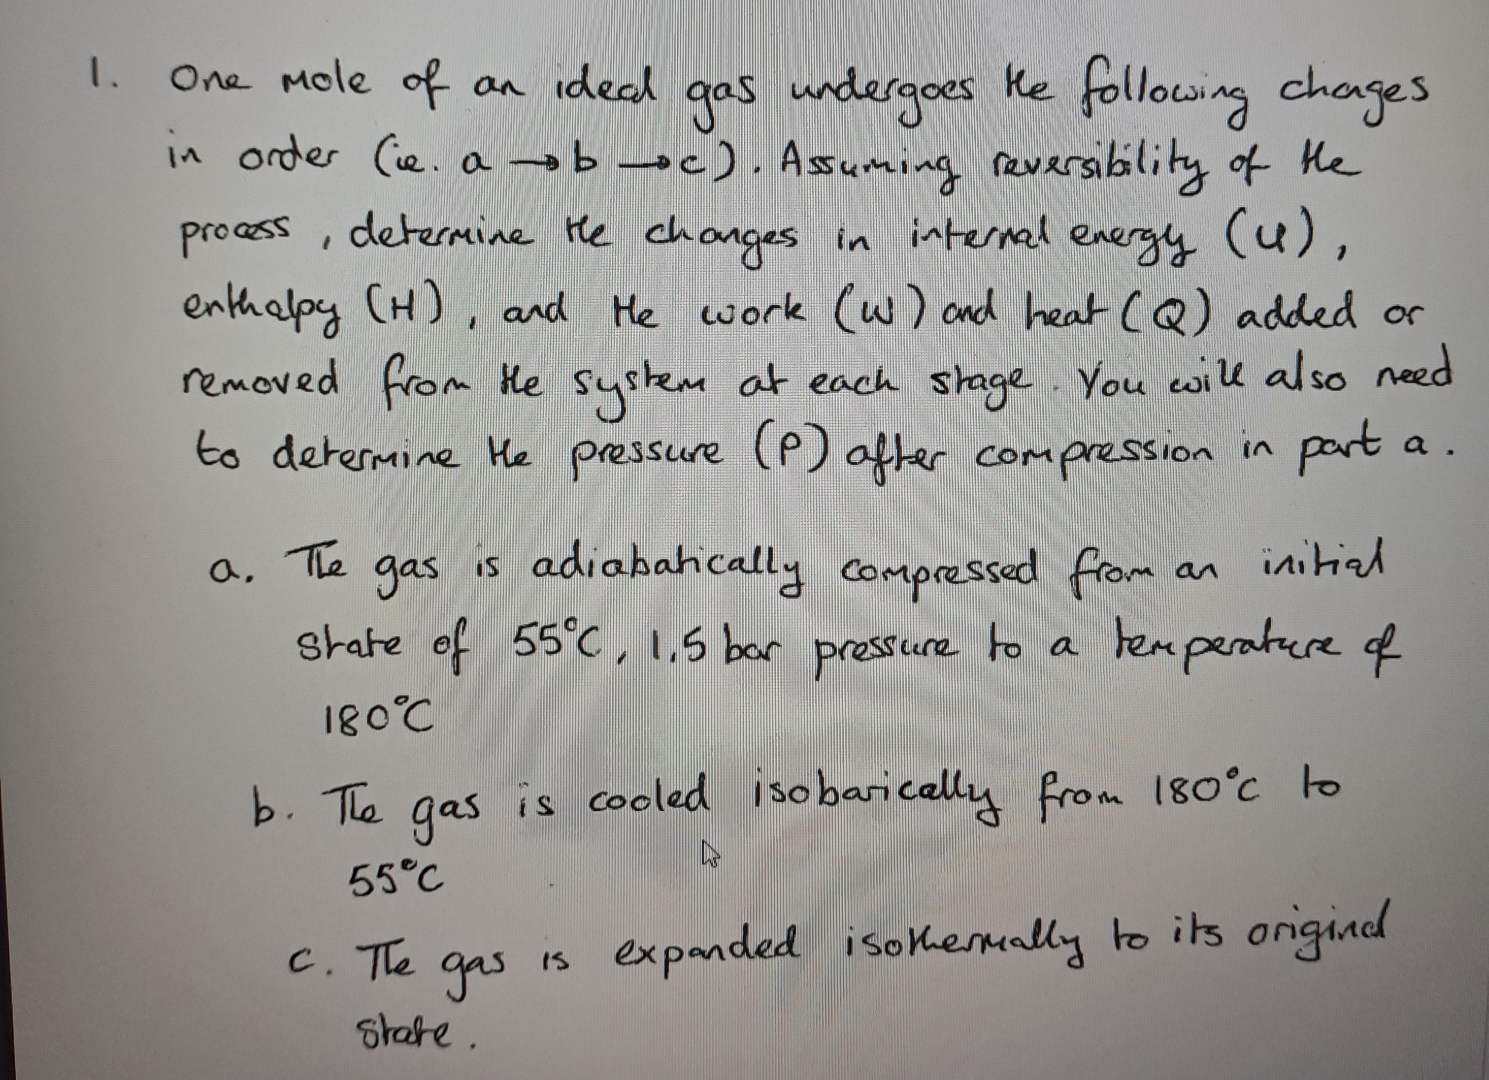 1. One mole of an ideal gas undergoes the following changes
in order (ie. a → b → c). Assuming reversibility of the
process, determine the changes in internal energy (U),
enthalpy (H), and the work (W) and heat (Q) added or
removed from the system at each stage. You will also need
to determine the pressure (P) after compression in part a.
a. The gas is adiabatically compressed from an initial
state of 55°C, 1.5 bar pressure to a temperature of
180°C
b. The gas is cooled isobarically from 180°C to
55°C
c. The gas is expanded isothermally to its original
state.